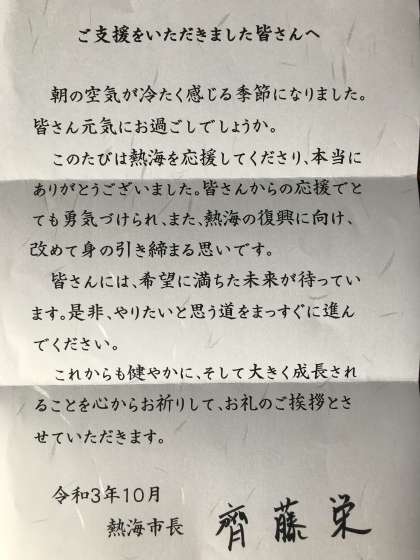 ご支援をいただきました皆さんへ
朝の空気が冷たく感じる季節になりました。
皆さん元気にお過ごしでしょうか。
このたびは熱海を応援してくださり、本当に
ありがとうございました。皆さんからの応援でと
ても勇気づけられ、また、熱海の復興に向け、
改めて身の引き締まる思いです。
皆さんには、希望に満ちた未来が待ってい
ます。是非、やりたいと思う道をまっすぐに進ん
でください。
これからも健やかに、そして大きく成長され
ることを心からお祈りして、お礼のご挨拶とさ
せていただきます。
令和3年10月
熱海市長 齊藤栄